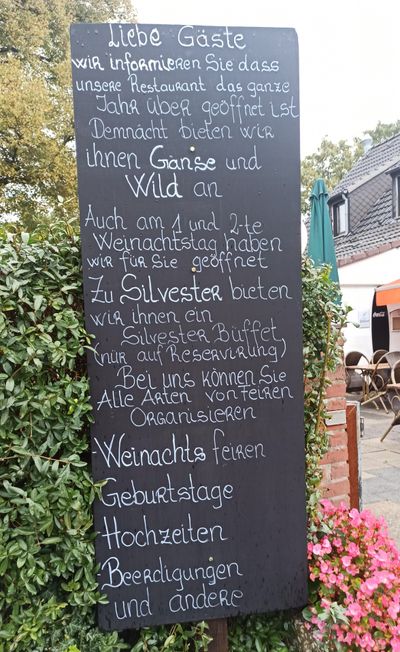 Liebe Gäste
wir informieren Sie dass
unsere Restaurant das ganze
Jahr über geöffnet ist
Demnächt bieten wir
ihnen Gänse und
Wild an
Auch am 1 und 2-te
Weinachtstag haben
wir für Sie geöffnet
Zu Silvester bieten
wir ihnen ein
Silvester Büffet
(nur auf Reservirung)
Bei uns können Sie
Alle Arten von feiren
Organisieren
-Weinachts feiren
Geburtstage
-Hochzeiten
-Beerdigungen
und andere
Coca-Cola